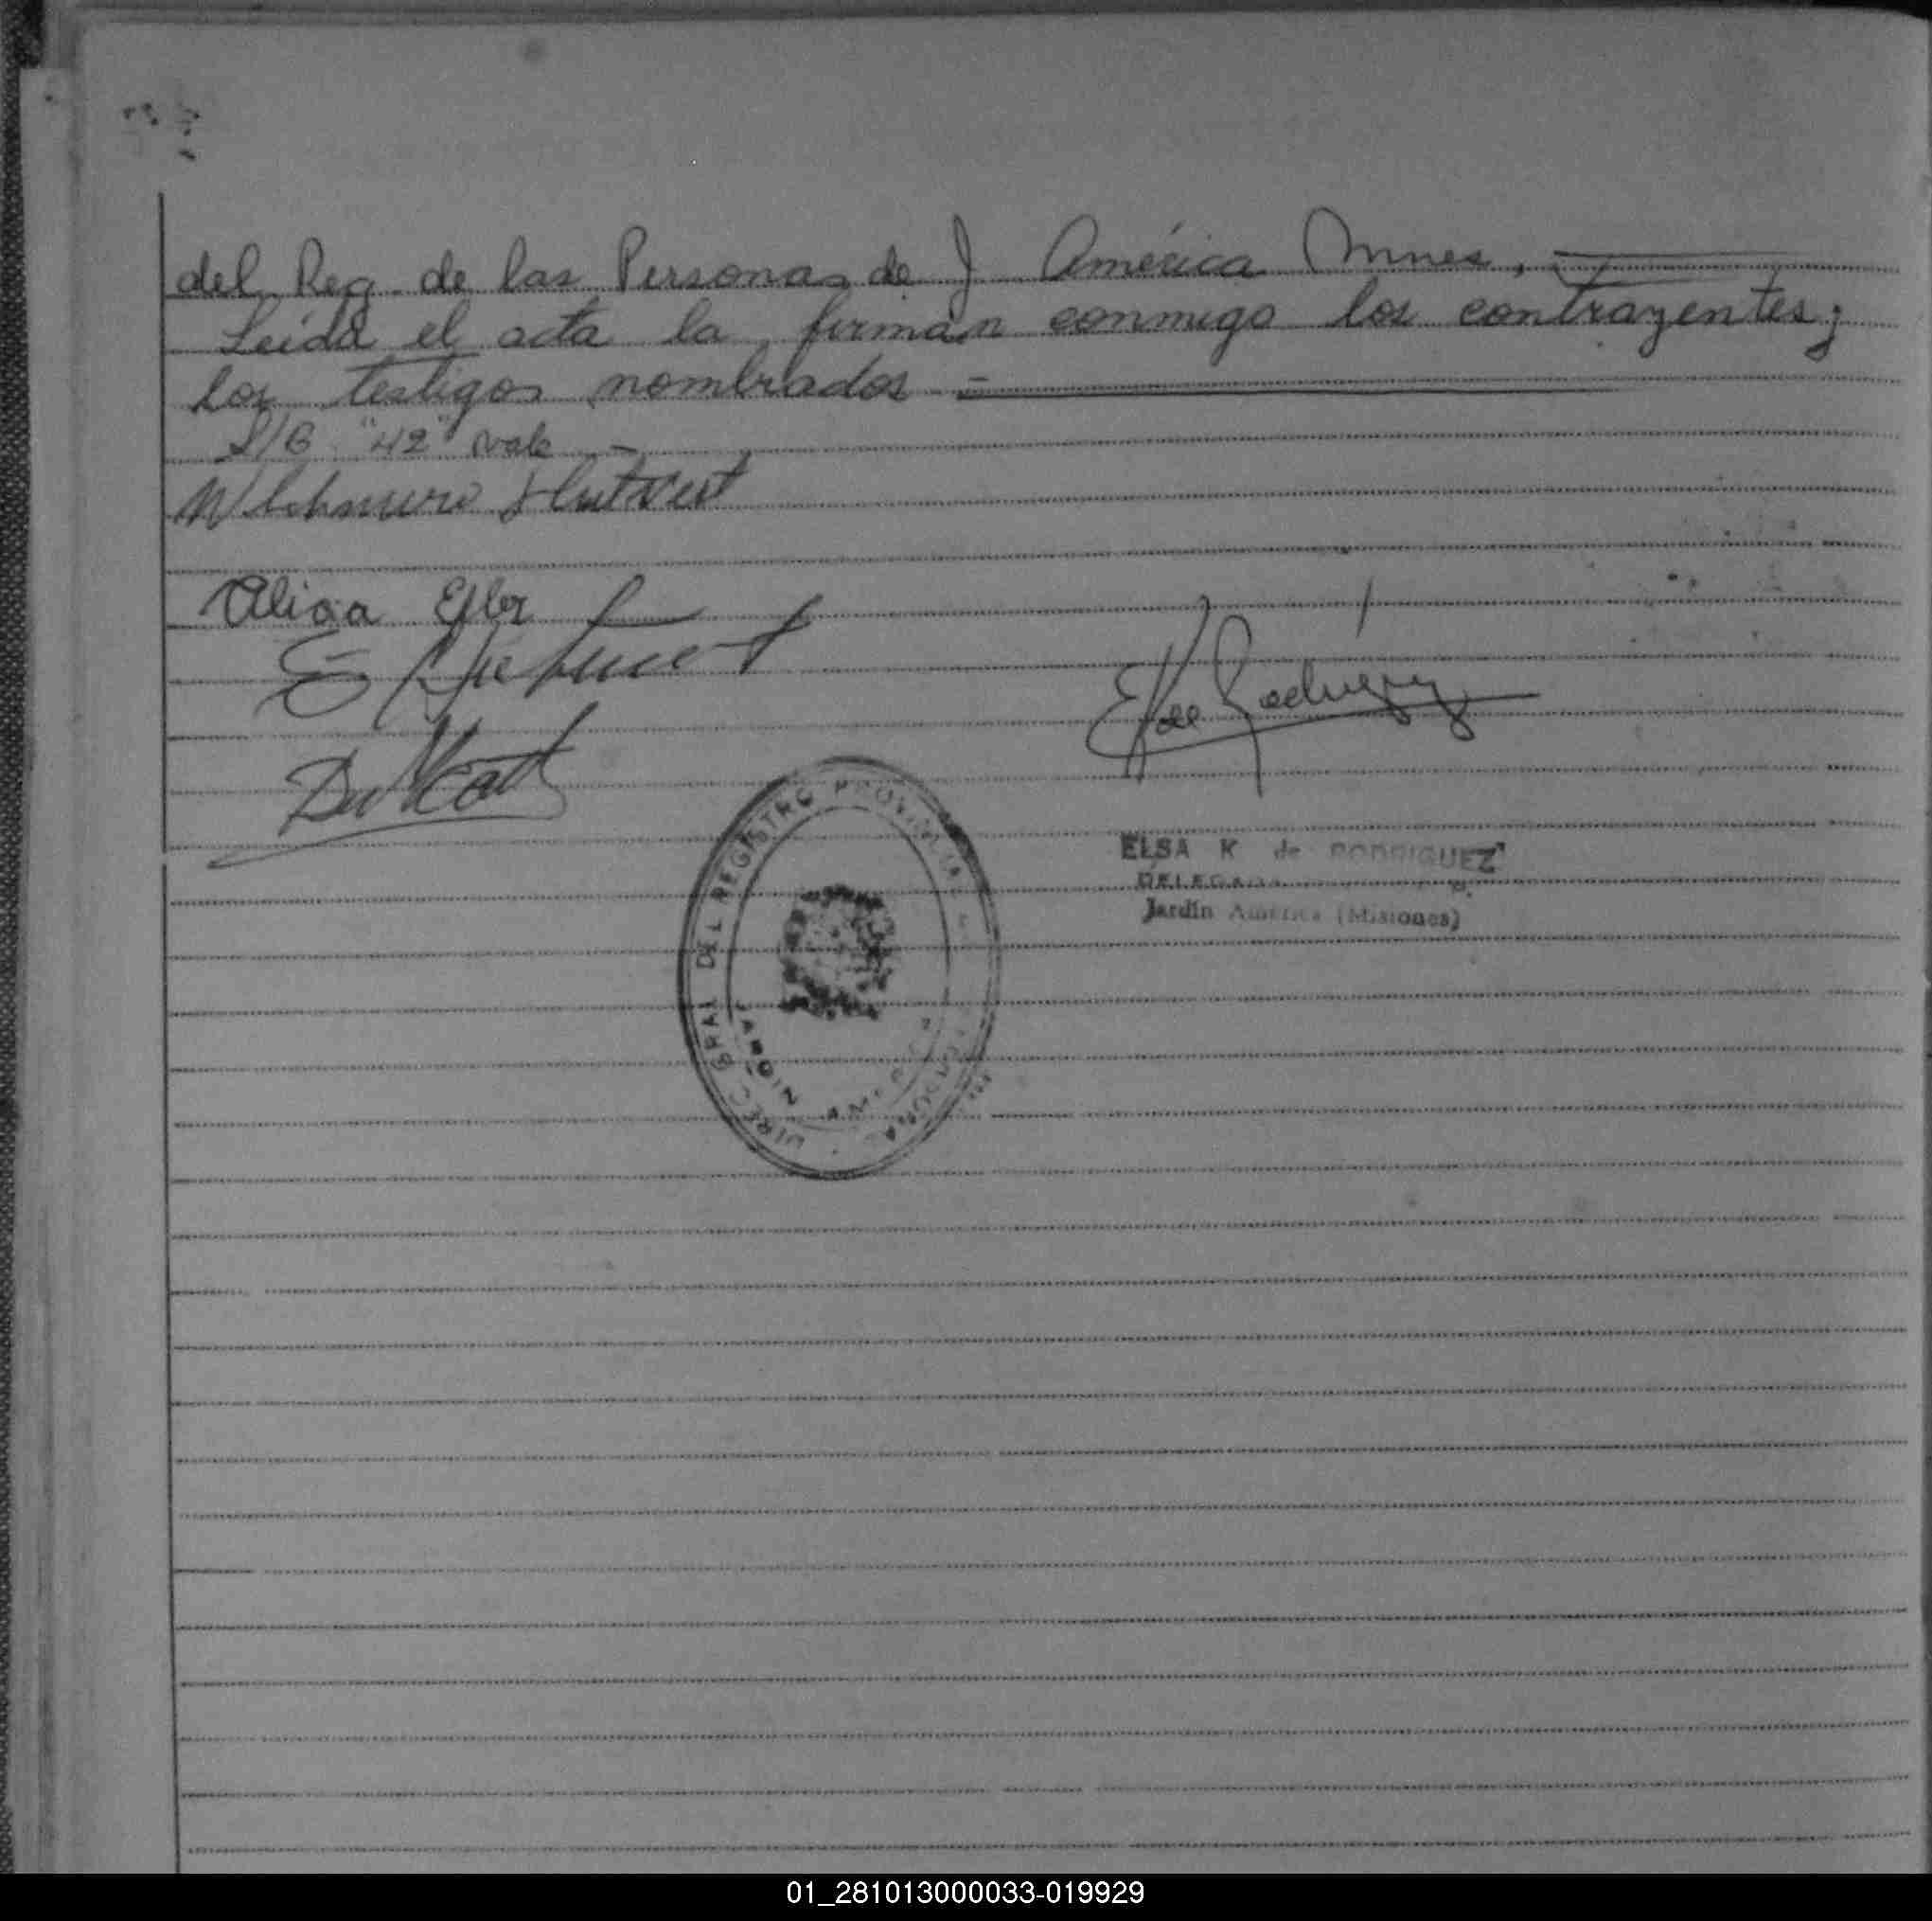 del Reg. de las Personas de J América Mnes,
Leída el acta la firman conmigo los contrayentes y
los testigos nombrados =
S/B "42" vale
Alicia
ELSA K de RODRIGUEZ
DELEGADA
Jardín América (Misiones)
DIREC. GRAL DEL REGISTRO PROVINCIAL
JARDIN AMERICA
01_281013000033-019929